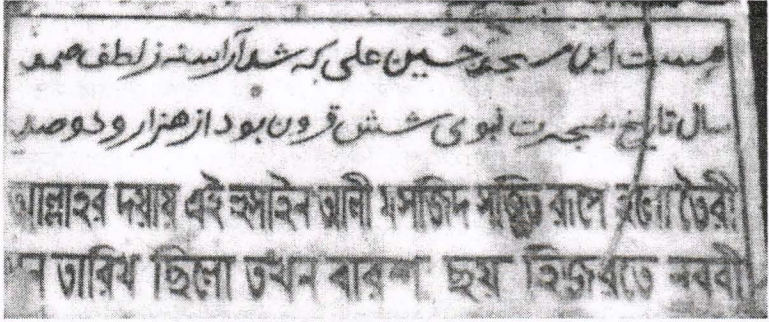 هست این مسجد حسین علی که شد آراسته ز لطف صمد
سال تاریخ هجرت نبوی شش فزون بود از هزار و دو صد
আল্লাহর দয়ায় এই হুসাইন আলী মসজিদ সজ্জিত রূপে হলো তৈরী
তারিখ ছিলো তখন বারশ ছয় হিজরতে নববী